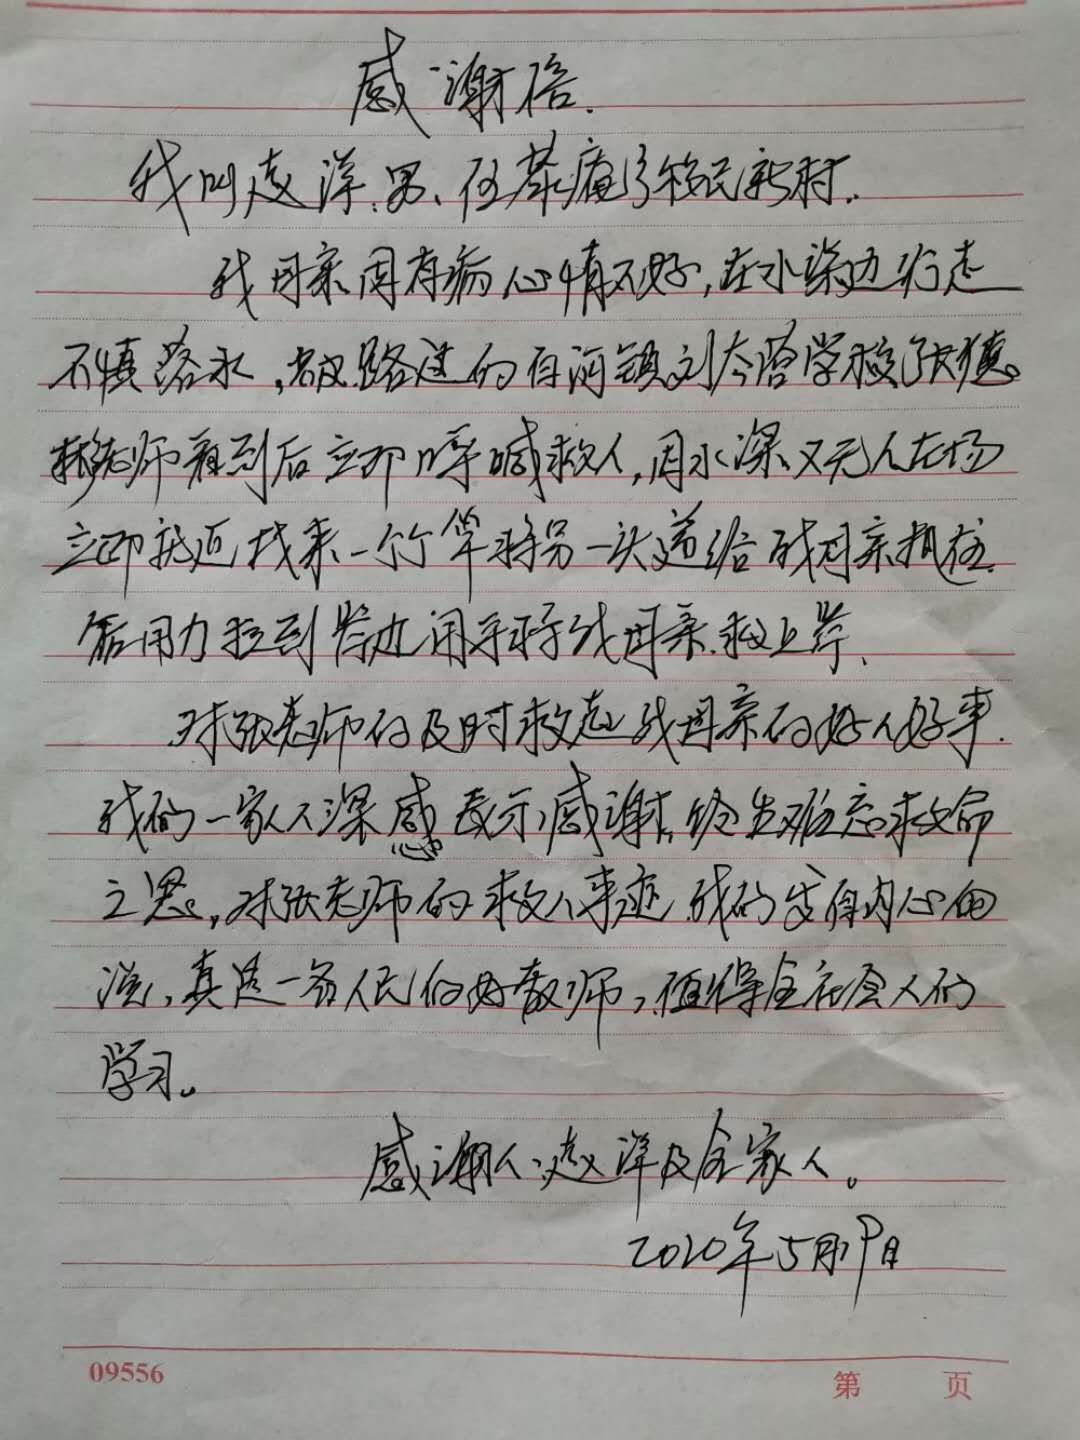 感谢信.
我叫赵洋.男、住茶庵乡移民新村.
我母亲因有病心情不好,在水渠边行走
不慎落水,被路过的白河镇刘太营学校张德
林老师看到后立即呼喊救人,因水深、又无人在场
立即就近找来一个竹竿将另一头递给我母亲抓住.
后用力拉到岸边用手将我母亲.救上岸、
对张老师的及时救起我母亲的好人好事.
我们一家人深感表示感谢,终生难忘救命
之恩,对张老师的救人事迹我们发自内心的
说,真是一名人民的好教师,值得全社会人的
学习。
感谢人:赵洋及全家人。
2020年5月19日
09556
第 页